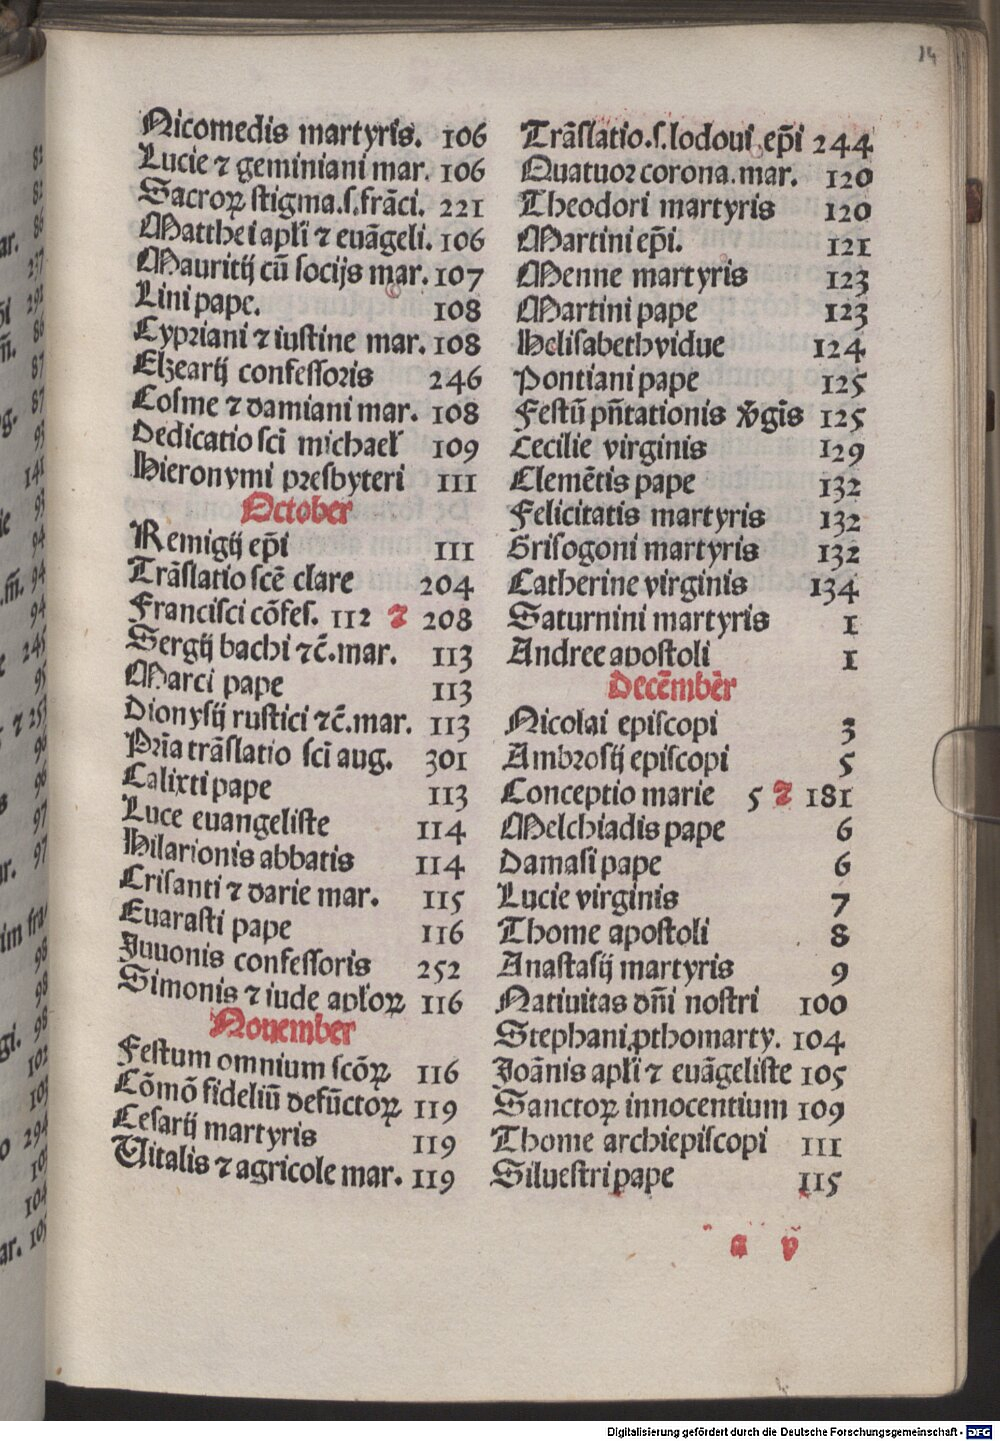 14
Nicomedis martyris. 106
Lucie ⁊ geminiani mar. 106
Sacroꝝ stigma.s.frāci. 221
Matthei apl'i ⁊ euāgeli. 106
Mauritij cū socijs mar. 107
Lini pape. 108
Cypriani ⁊ iustine mar. 108
Elzearij confessoris 246
Cosme ⁊ damiani mar. 108
Dedicatio scī michael' 109
Hieronymi presbyteri 111
October
Remigij ep̄i 111
Trāslatio scē clare 204
Francisci cōfes. 112 ⁊ 208
Sergij bachi ⁊c̄.mar. 113
Marci pape 113
Dionysij rustici ⁊c̄.mar. 113
Pr̄ia trāslatio scī aug. 301
Calixti pape 113
Luce euangeliste 114
Hilarionis abbatis 114
Crisanti ⁊ darie mar. 115
Euarasti pape 116
Juuonis confessoris 252
Simonis ⁊ iude apl'oꝝ 116
Nouember
Festum omnium scōꝝ 116
Cōmō fideliū defūctoꝝ 119
Cesarij martyris 119
Uitalis ⁊ agricole mar. 119
Trāslatio.s.lodoui ep̄i 244
Quatuor corona.mar. 120
Theodori martyris 120
Martini ep̄i. 121
Menne martyris 123
Martini pape 123
Helisabeth vidue 124
Pontiani pape 125
Festū pn̄tationis v̄gīs 125
Cecilie virginis 129
Clemētis pape 132
Felicitatis martyris 132
Grisogoni martyris 132
Catherine virginis 134
Saturnini martyris 1
Andree apostoli 1
Decēmbēr
Nicolai episcopi 3
Ambrosij episcopi 5
Conceptio marie 5 ⁊ 181
Melchiadis pape 6
Damasi pape 6
Lucie virginis 7
Thome apostoli 8
Anastasij martyris 9
Natiuitas dn̄i nostri 100
Stephani ꝓthomarty. 104
Joānis apl'i ⁊ euāgeliste 105
Sanctoꝝ innocentium 109
Thome archiepiscopi 111
Siluestri pape 115
a v
Digitalisierung gefördert durch die Deutsche Forschungsgemeinschaft - DFG